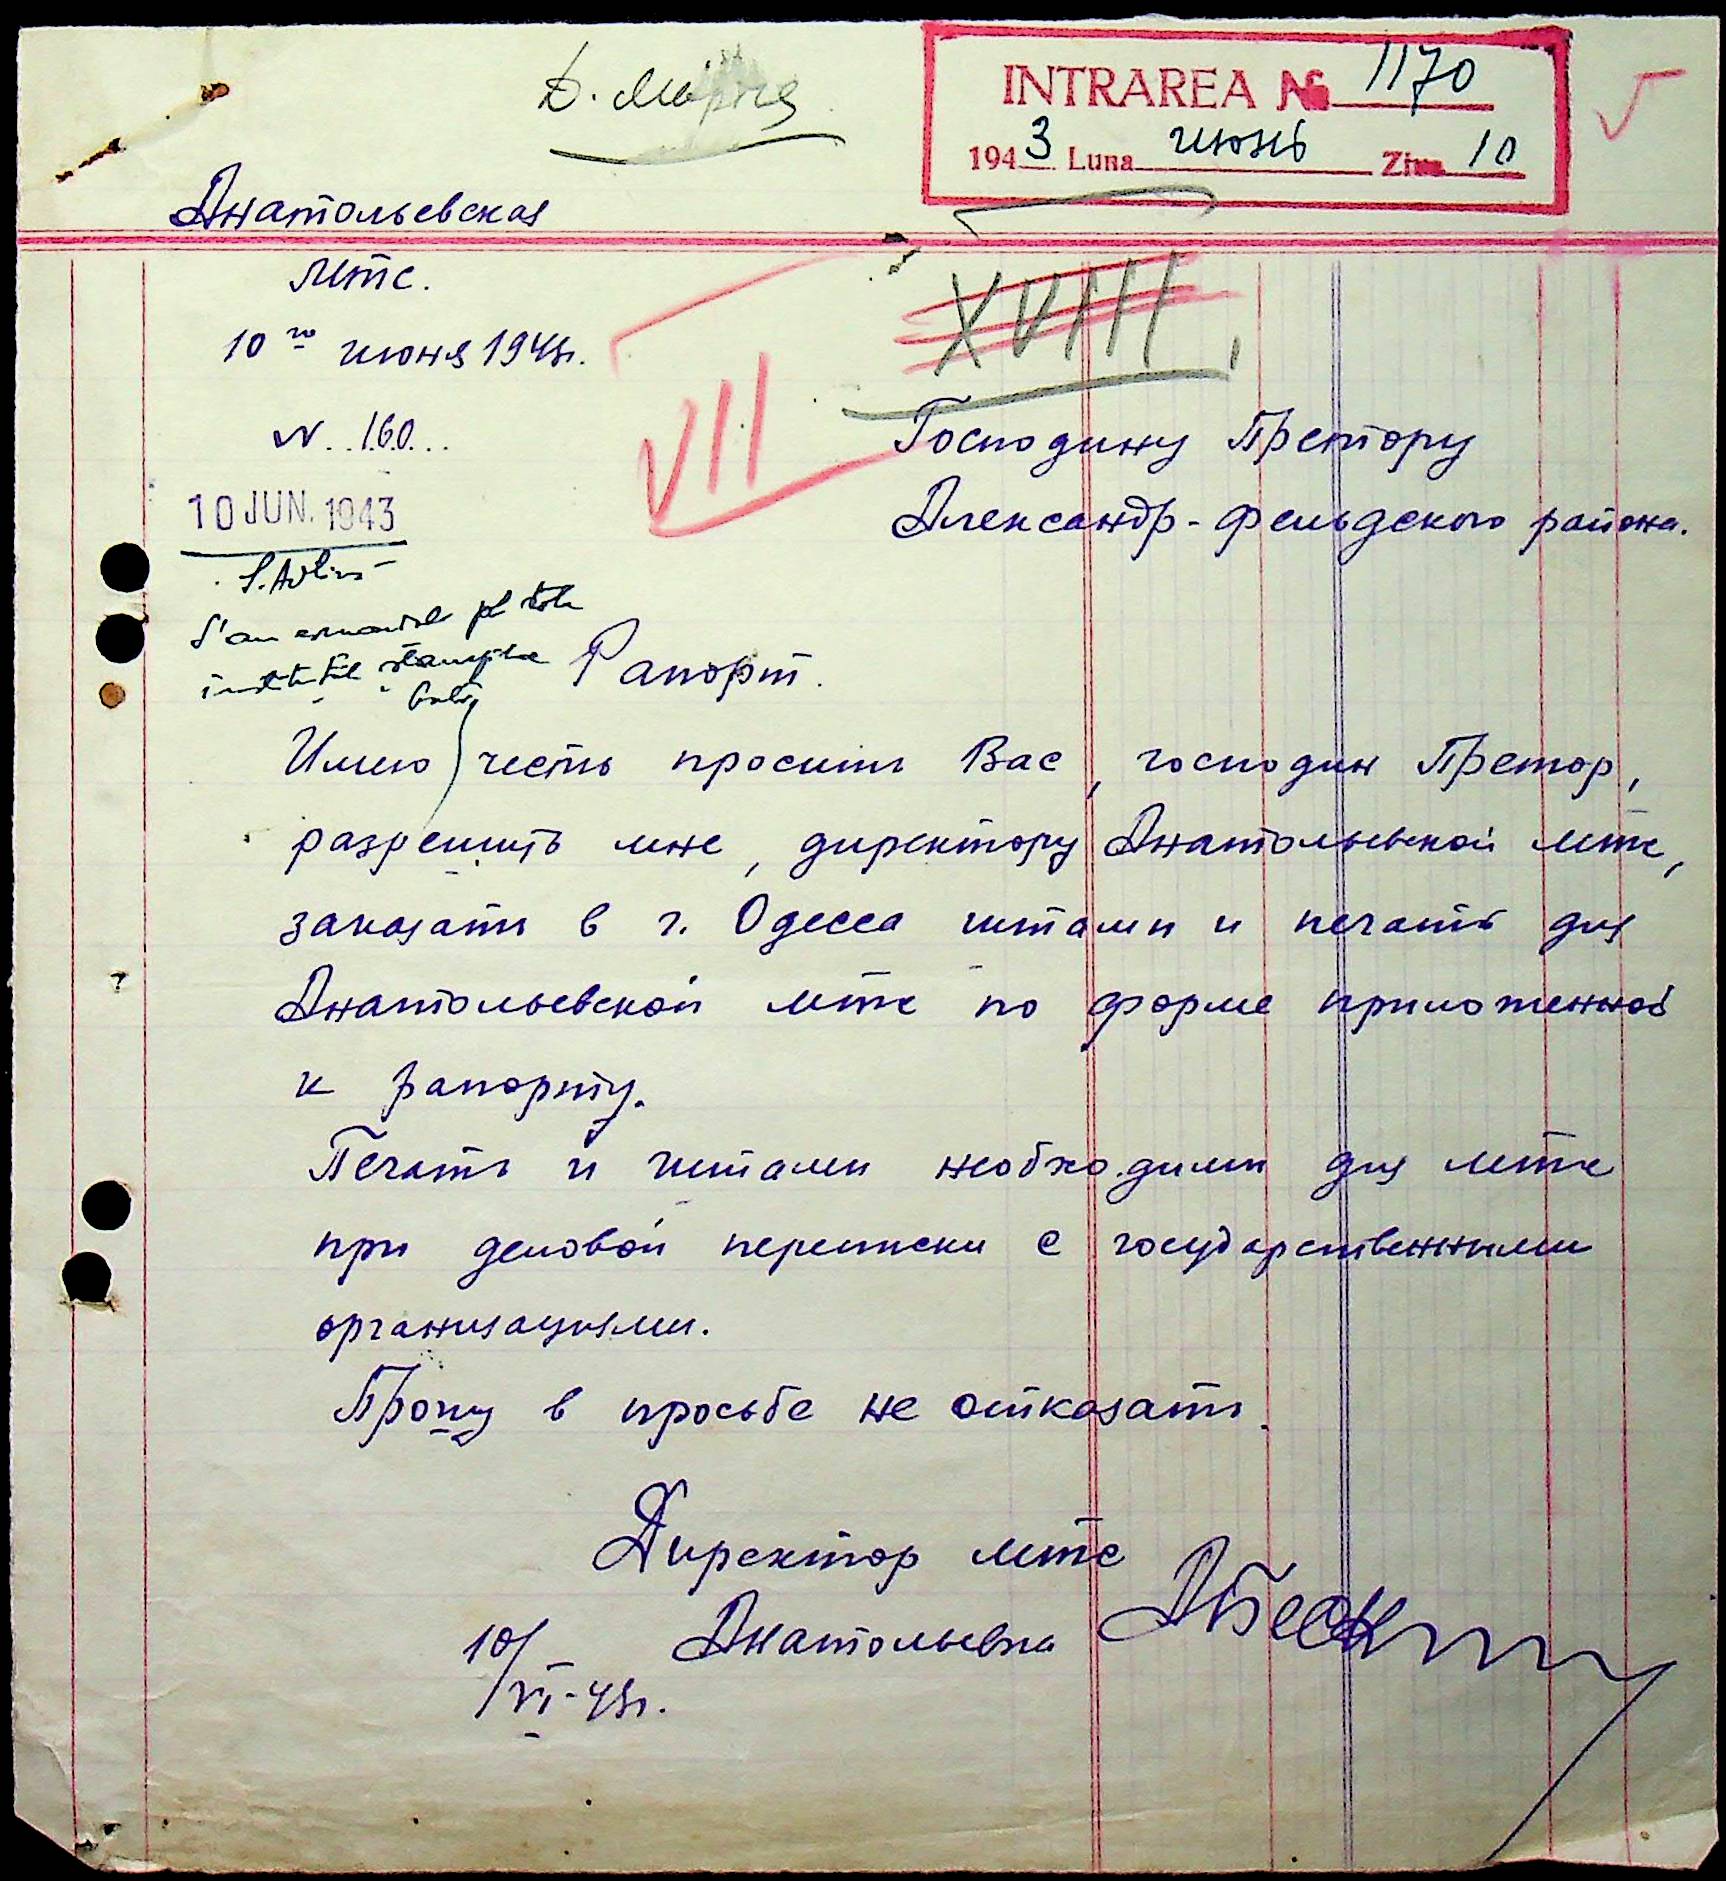 INTRAREA № 1170
1943 Luna июнь Ziua 10
Анатольевская
МТС.
10го июня 1943г.
N. .160...
10 JUN. 1943
S'au comandat pt toate
XVIII
VII
Господину Претору
Александр-Фельдского района.
Рапорт.
Имею честь просить Вас, господин Претор,
разрешить мне, директору Анатольевской МТС,
заказать в г. Одесса штамп и печать для
Анатольевской МТС по форме приложенной
к рапорту.
Печать и штамп необходимы для МТС
при деловой переписки с государственными
организациями.
Прошу в просьбе не отказать.
Директор МТС
Анатольевка
10/VI-43г.